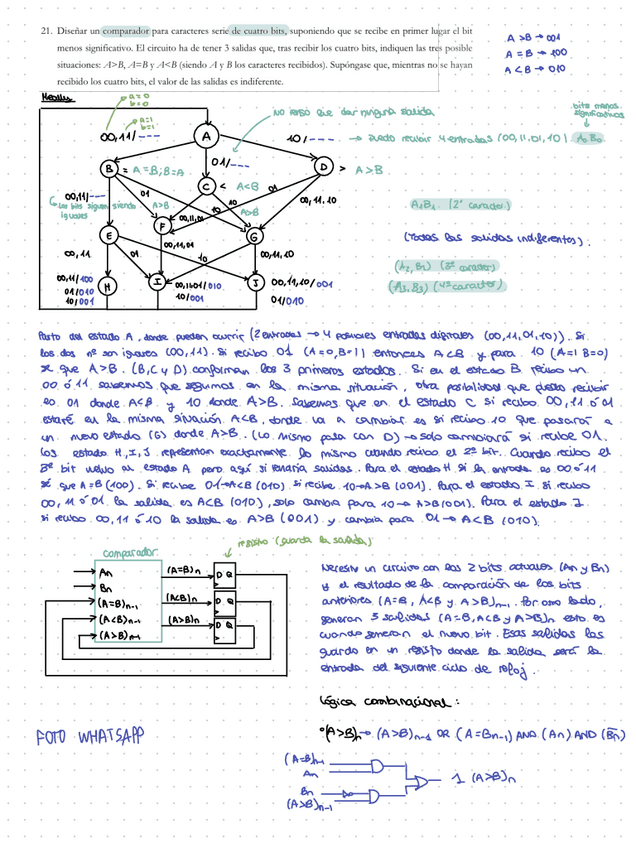 21. Diseñar un comparador para caracteres serie de cuatro bits, suponiendo que se recibe en primer lugar el bit
menos significativo. El circuito ha de tener 3 salidas que, tras recibir los cuatro bits, indiquen las tres posible
situaciones: A>B, A=B y A<B (siendo A y B los caracteres recibidos). Supóngase que, mientras no se hayan
recibido los cuatro bits, el valor de las salidas es indiferente.
A > B → 001
A = B → 100
A < B → 010
Mealy
a=0
b=0
a=1
b=1
NO tengo que dar ninguna salida
bits menos
significativos
00,11/---
A
10/---
→ puedo recibir 4 entradas (00,11,01,10)
A0 B0
01/---
B
= A=B; B=A
C
< A<B
D
> A>B
00,11/---
Los bits siguen siendo
iguales
01
A>B
00,11,01
10
A>B
10
01
00,11,10
A1B1 (2º caracter)
E
F
G
(Todas las salidas indiferentes).
00,11
01
00,11,01
10
00,11,10
(A2, B2) (3º caracter)
(A3, B3) (4º caracter)
00,11/100
01/010
10/001
H
I
00,11,01/010
10/001
J
00,11,10/001
01/010
Parto del estado A, donde pueden ocurrir (2 entradas → 4 posibles entradas digitales (00,11,01,10)). Si
los dos nº son iguales (00,11). Si recibo 01 (A=0,B=1) entonces A<B y para 10 (A=1 B=0)
sé que A>B. (B,C y D) conforman los 3 primeros estados. Si en el estado B recibo un
00 ó 11 sabemos que seguimos en la misma situación, otra posibilidad que puedo recibir
es 01 donde A<B y 10 donde A>B. Sabemos que en el estado C si recibo 00, 11 ó 01
estaré en la misma situación A<B, donde va a cambiar es si recibo 10 que pasará a
un nuevo estado (G) donde A>B. (Lo mismo pasa con D) → solo cambiará si recibe 01.
Los estado H,I,J representan exactamente lo mismo cuando recibo el 2º bit. Cuando recibo el
3º bit vuelvo al estado A pero aquí sí tendría salidas. Para el estado H si la entrada es 00 ó 11
sé que A=B (100). Si recibe 01→A<B (010) si recibe 10→A>B (001). Para el estado I si recibo
00, 11 ó 01 la salida es A<B (010), solo cambia para 10→ A>B(001). Para el estado J
si recibo 00, 11 ó 10 la salida es A>B (001) y cambia para 01→ A<B (010).
registro (guarda la salida)
comparador
An
Bn
(A=B)n-1
(A<B)n-1
(A>B)n-1
(A=B)n
(A<B)n
(A>B)n
D Q
D Q
D Q
Necesito un circuito con los 2 bits actuales (An y Bn)
y el resultado de la comparación de los bits
anteriores (A=B, A<B y A>B)n-1. Por otro lado,
generan 3 salidas (A=B, A<B y A>B)n esto es
cuando generan el nuevo bit. Esas salidas las
guardo en un registro donde la salida será la
entrada del siguiente ciclo de reloj.
Lógica combinacional:
(A>B)n → (A>B)n-1 OR (A=Bn-1) AND (An) AND (Bn)
FOTO WHATSAPP
(A=B)n-1
An
Bn
(A>B)n-1
1 (A>B)n